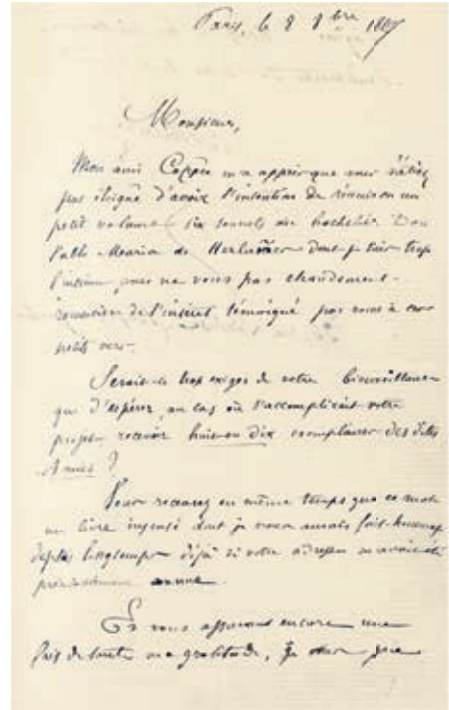 Paris, le 8 8bre 1867
Monsieur,
Mon ami Coppée m'a appris que vous n'étiez
pas éloigné d'avoir l'intention de réunir en un
petit volume les six sonnets du bachelier Don
Pablo-Maria de Herlañez dont je suis trop
l'intime pour ne vous pas chaudement
remercier de l'intérêt témoigné par vous à ces
petits vers.
Serait-ce trop exiger de votre bienveillance
que d'espérer, au cas où s'accomplirait votre
projet, recevoir huit ou dix exemplaires des dites
Amies ?
Vous recevrez en même temps que ce mot
un livre insensé dont je vous aurais fait hommage
depuis longtemps déjà si votre adresse m'avait été
précisément connue.
En vous assurant encore une
fois de toute ma gratitude, je vous prie